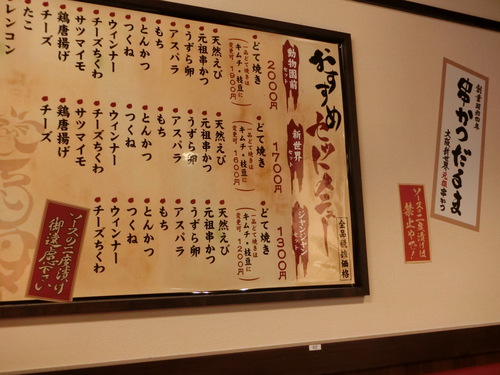 創業昭和四年
串かつだるま
大阪新世界元祖串かつ
ソースの二度漬けは
禁止やで!
おすすめセットメニュー
全品税抜価格
動物園前
セット
2000円
どて焼き
(一品どて焼きは
キムチ・枝豆に
変更可 1900円)
天然えび
元祖串かつ
うずら卵
アスパラ
もち
とんかつ
つくね
ウィンナー
チーズちくわ
サツマイモ
鶏唐揚げ
チーズ
たこ
レンコン
新世界
セット
1700円
どて焼き
(一品どて焼きは
キムチ・枝豆に
変更可 1600円)
天然えび
元祖串かつ
うずら卵
アスパラ
もち
とんかつ
つくね
ウィンナー
チーズちくわ
サツマイモ
鶏唐揚げ
チーズ
ジャンジャン
セット
1300円
どて焼き
(一品どて焼きは
キムチ・枝豆に
変更可 1200円)
天然えび
元祖串かつ
うずら卵
アスパラ
もち
とんかつ
つくね
ウィンナー
チーズちくわ
ソースの二度漬け
御遠慮下さい